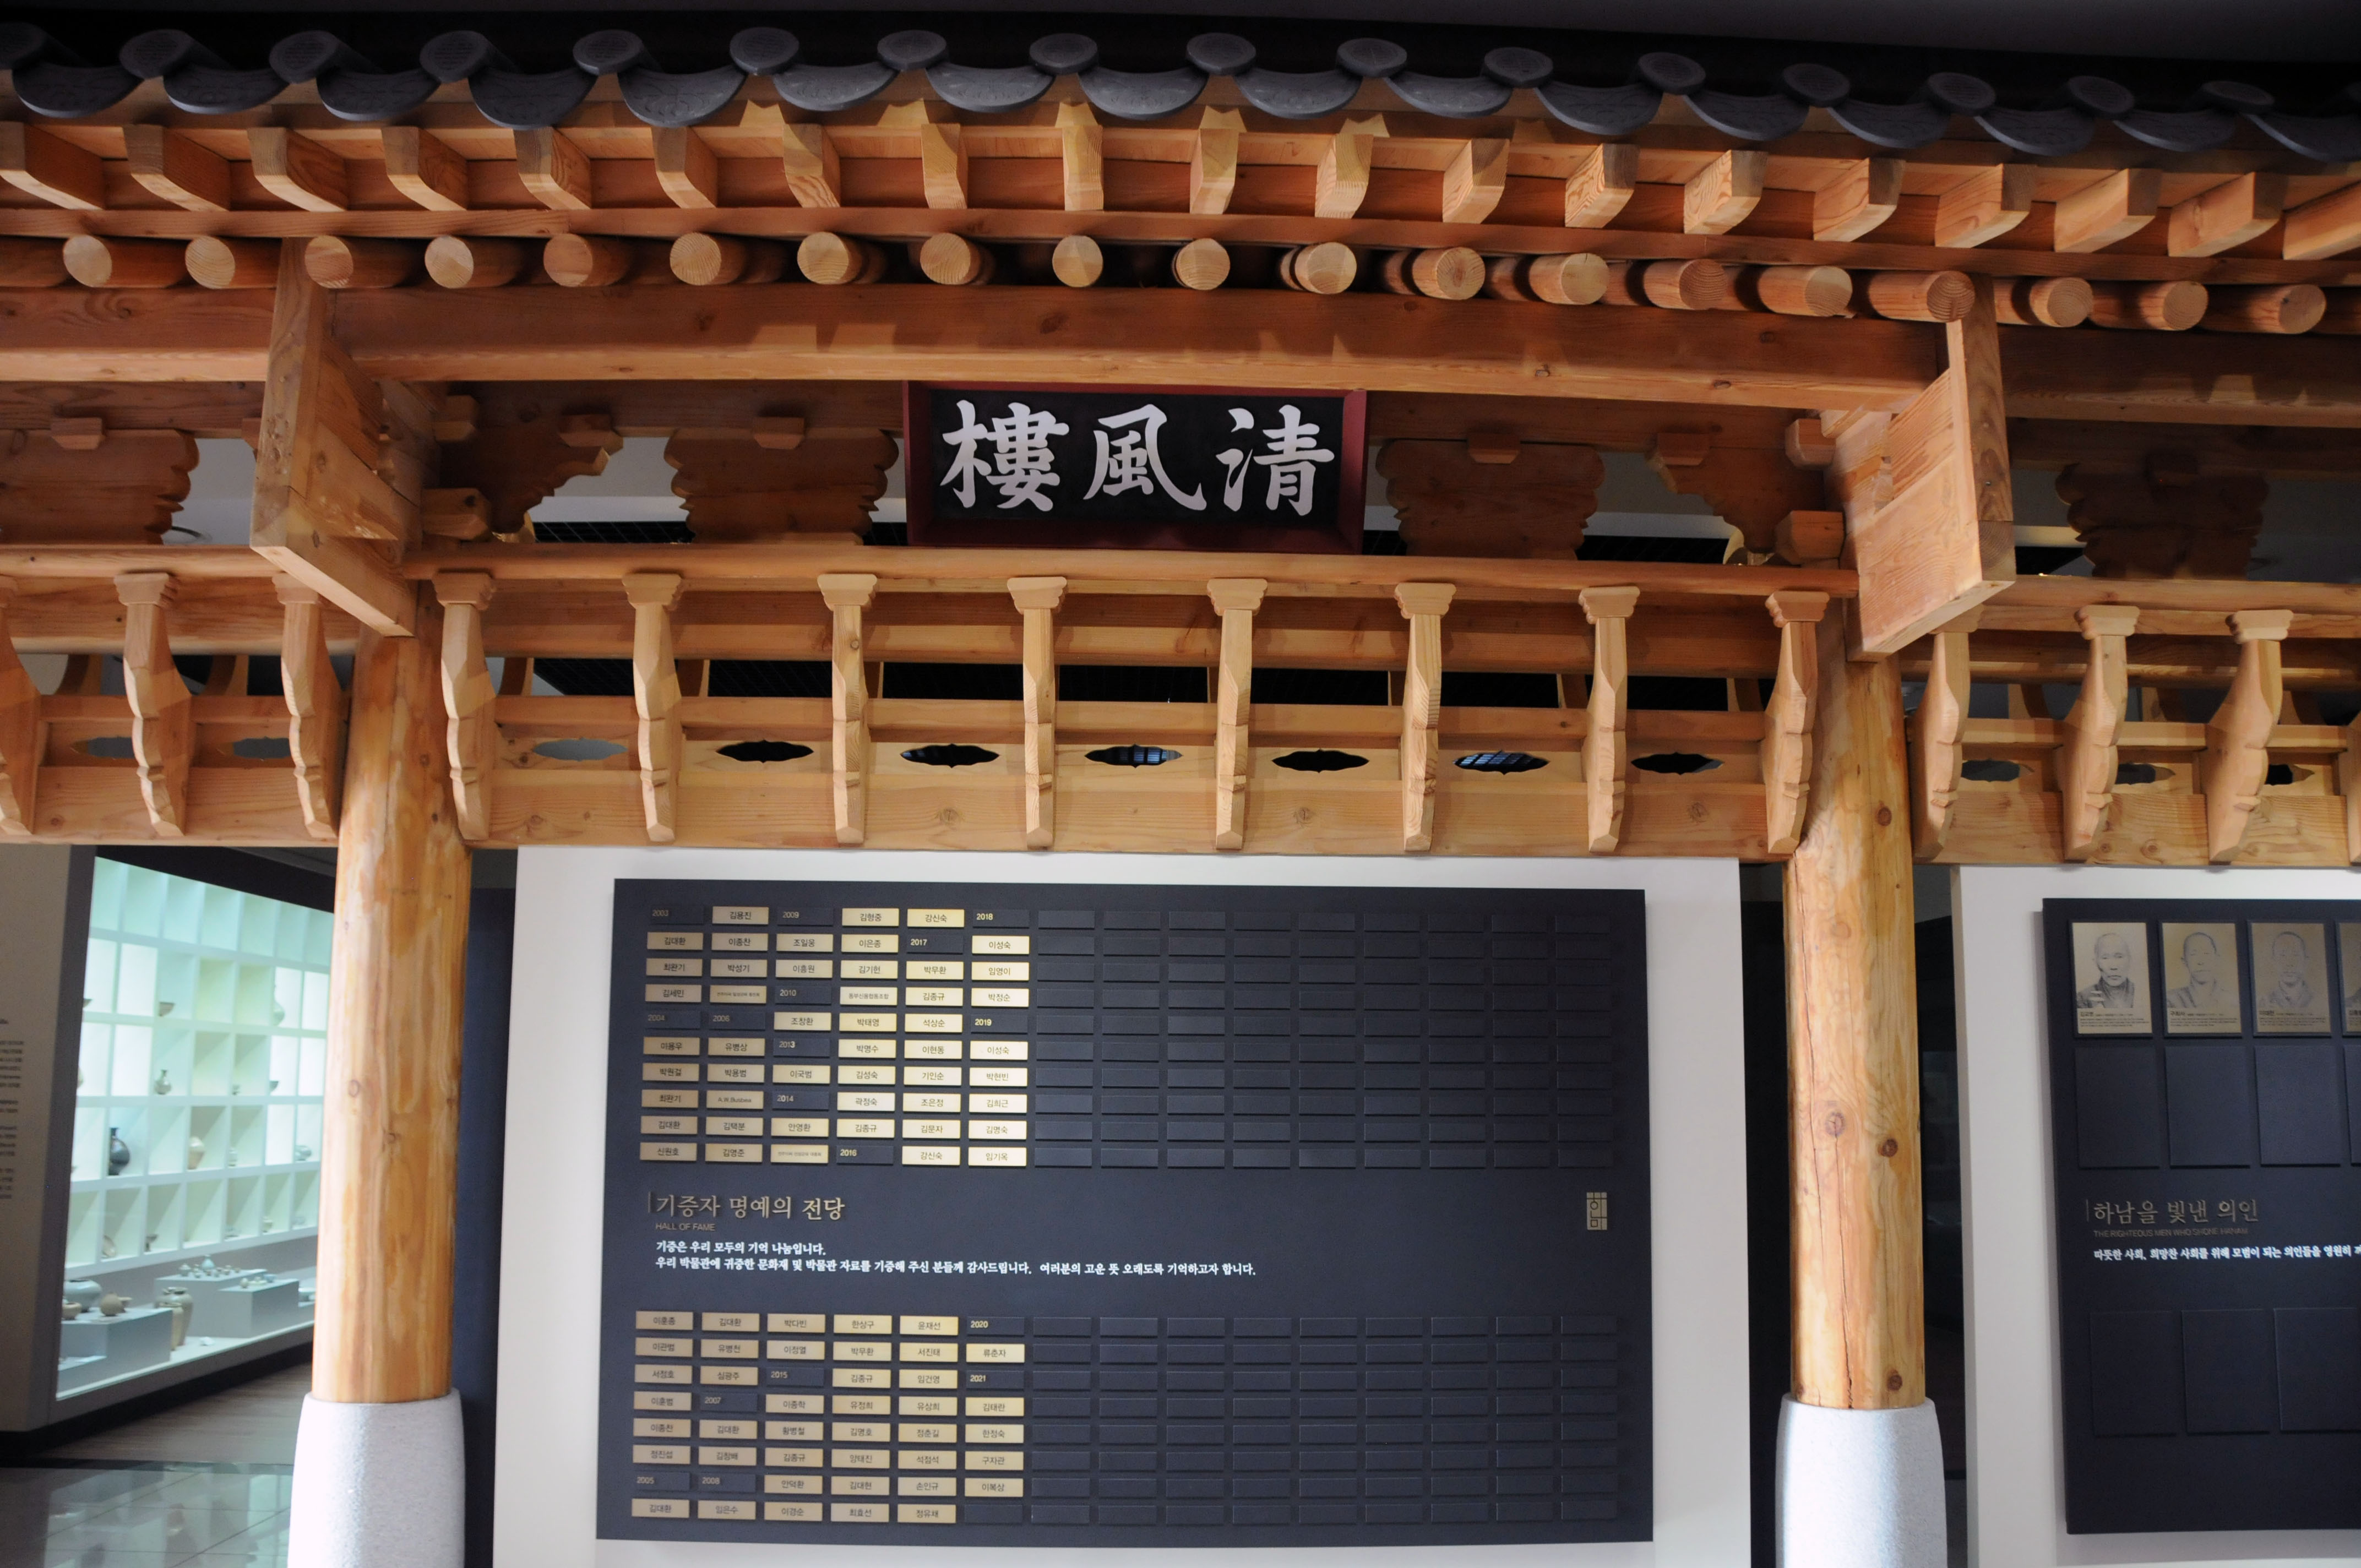 清風樓
2003 김용진 2009 김형중 강신숙 2018
김대환 이종찬 조일웅 이은종 2017 이성숙
최완기 박성기 이종원 김기헌 박무환 임명이
김세민 2010 김종규 박정순
2004 2006 조창환 박태영 석상순 2019
이용우 유병상 2013 박명수 이현동 이성숙
박원걸 박용범 이국범 김성숙 기인순 박현빈
최완기 A.W.Busbea 2014 곽정숙 조은정 김희근
김대환 김택분 안영환 김종규 김문자 김명숙
신원호 김영준 2016 강신숙 임기옥
기증자 명예의 전당
HALL OF FAME
기증은 우리 모두의 기억 나눔입니다.
우리 박물관에 귀중한 문화재 및 박물관 자료를 기증해 주신 분들께 감사드립니다. 여러분의 고운 뜻 오래도록 기억하고자 합니다.
이훈종 김대환 박다빈 한상구 윤재선 2020
이관범 유병천 이정열 박무환 서진태 류춘자
서정호 심광주 2015 김종규 임건영 2021
이훈범 2007 이종학 유정희 유상희 김태란
이종찬 김대환 황병철 김명호 정춘길 한정숙
정진섭 김창배 김종규 양태진 석점석 구자관
2005 2008 안덕환 김대현 손인규 이복상
김대환 임은수 이경순 최효선 정유채
하남을 빛낸 의인
THE RIGHTEOUS MEN WHO SHONE HANAM
따뜻한 사회, 희망찬 사회를 위해 모범이 되는 의인들을 영원히